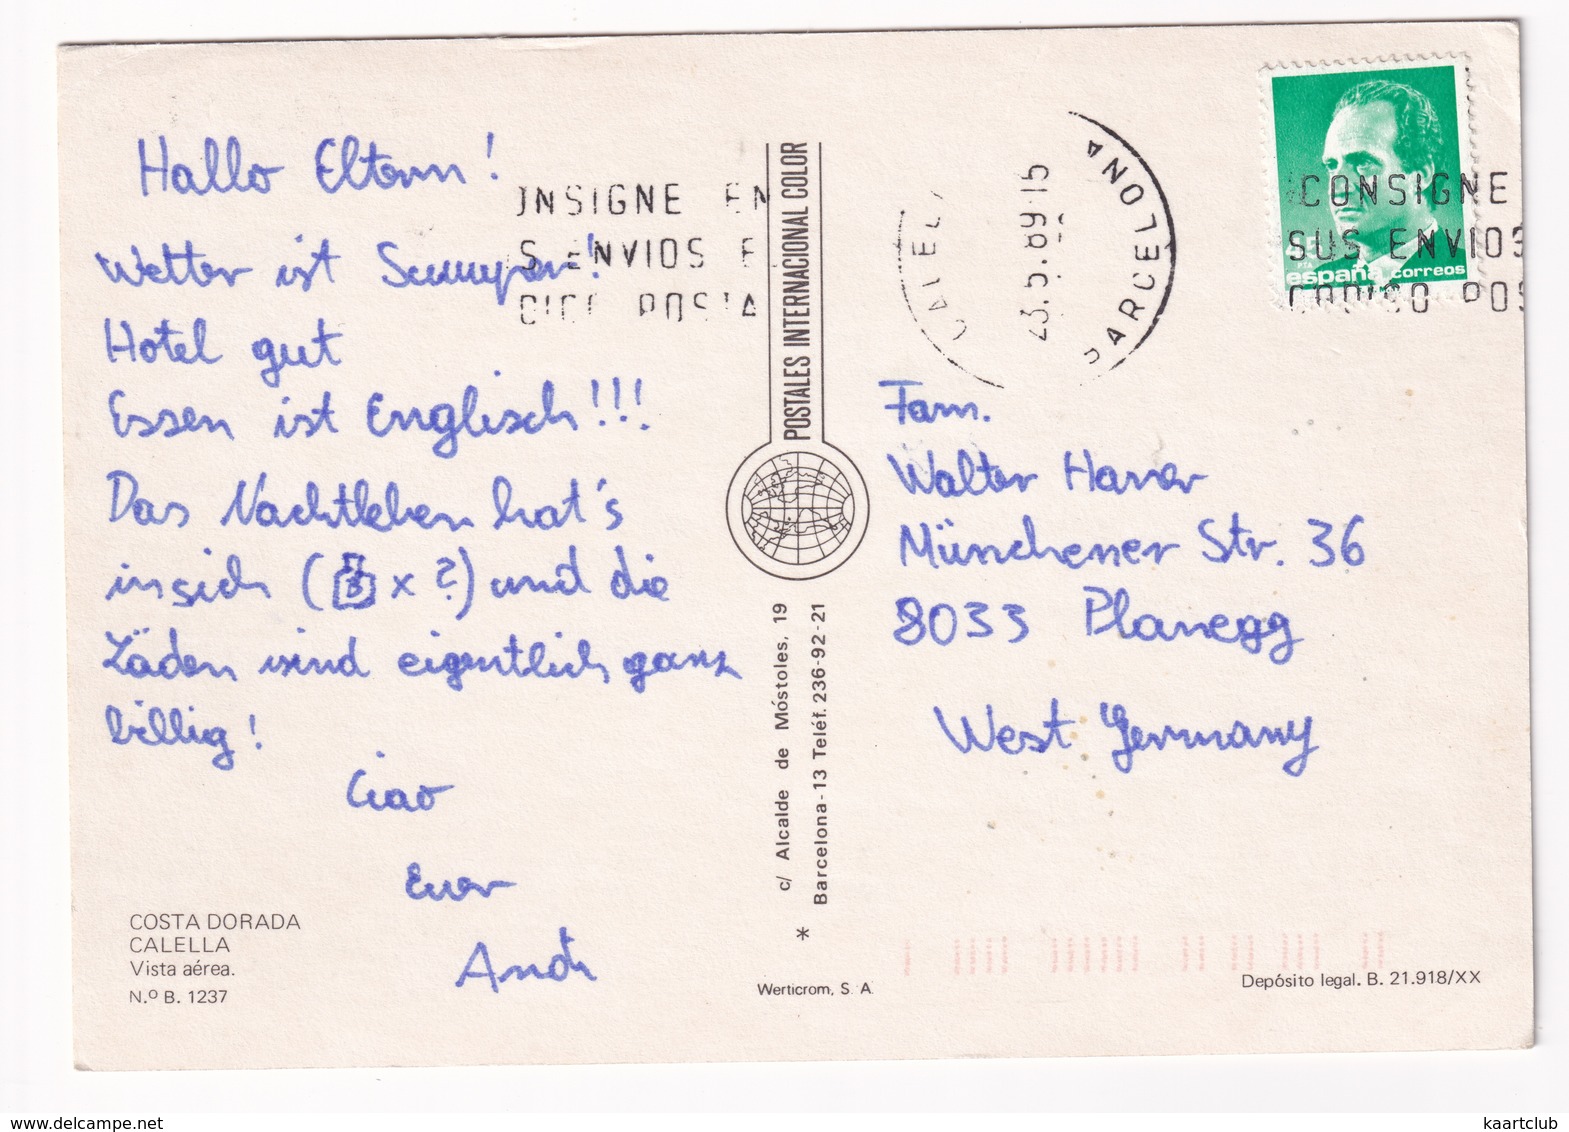 Hallo Eltern!
Wetter ist
Hotel gut
Essen ist Englisch!!!
Das Nachtleben hat's
in sich ( x ?) und die
Läden sind eigentlich ganz
billig!
Ciao
Euer
Andi
COSTA DORADA
CALELLA
Vista aérea.
N.º B. 1237
NSIGNE EN
S ENVIOS E
POSTA
POSTALES INTERNACIONAL COLOR
c/ Alcalde de Móstoles, 19
Barcelona-13 Teléf. 236-92-21
*
Werticrom, S. A.
CALEL
23.5.89-15
BARCELONA
CONSIGNE
SUS ENVIOS
CODIGO POS
45
PTA
españa correos
Fam.
Walter
Münchener Str. 36
8033 Planegg
West Germany
Depósito legal. B. 21.918/XX
delcampe.net
kaartclub